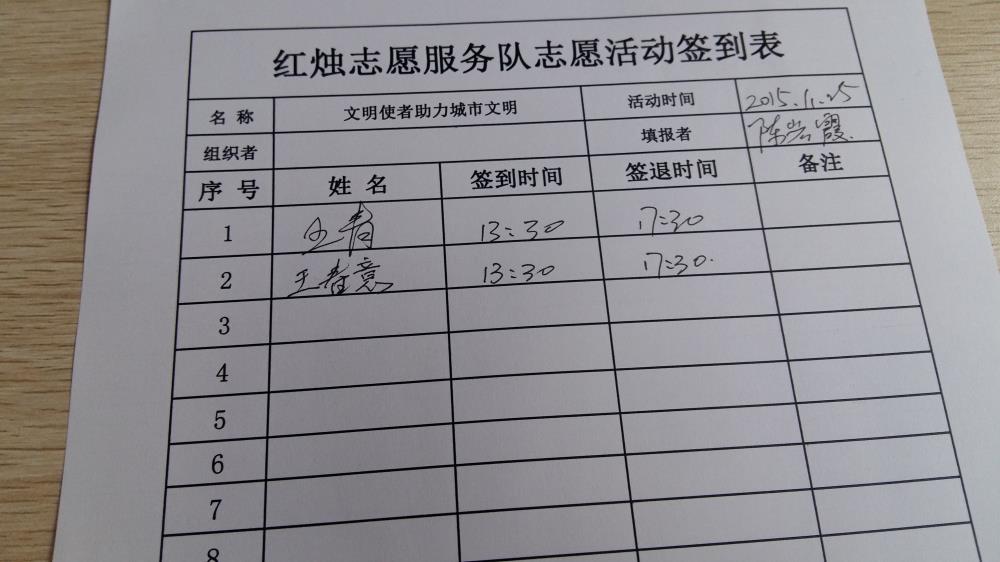 红烛志愿服务队志愿活动签到表
名 称 文明使者助力城市文明 活动时间 2015.11.25
组织者 填报者 陈岩霞
序 号 姓 名 签到时间 签退时间 备注
1 王青 13:30 17:30
2 王春意 13:30 17:30
3
4
5
6
7
8